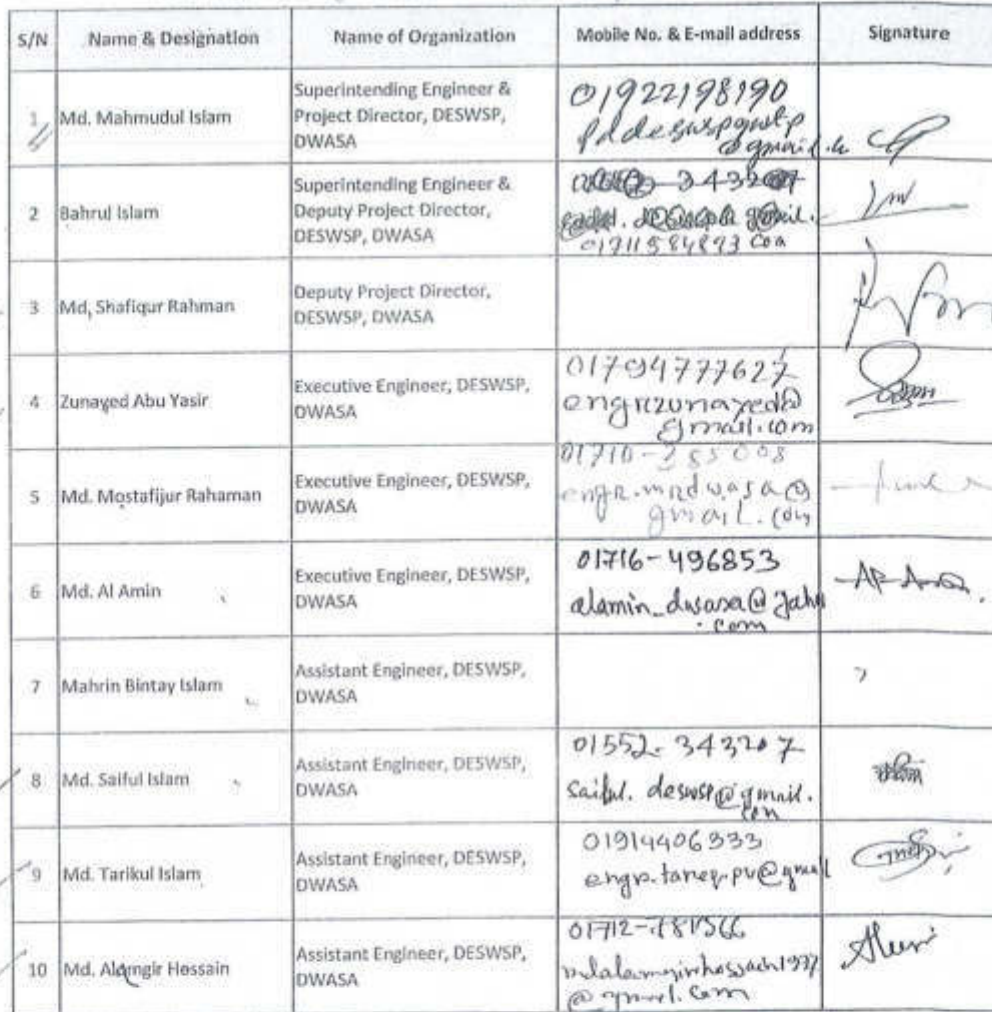 S/N Name & Designation Name of Organization Mobile No. & E-mail address Signature
1 Md. Mahmudul Islam
Superintending Engineer &
Project Director, DESWSP,
DWASA
01922198190
@gmail.
2 Bahrul Islam
Superintending Engineer &
Deputy Project Director,
DESWSP, DWASA
3 Md. Shafiqur Rahman
Deputy Project Director,
DESWSP, DWASA
4 Zunayed Abu Yasir
Executive Engineer, DESWSP,
DWASA
01794777627
engrzunayed@
gmail.com
5 Md. Mostafijur Rahaman
Executive Engineer, DESWSP,
DWASA
engr.mrdwasa@
gmail.com
6 Md. Al Amin
Executive Engineer, DESWSP,
DWASA
01716-496853
alamin_dwasa@yaho
.com
7 Mahrin Bintay Islam
Assistant Engineer, DESWSP,
DWASA
8 Md. Saiful Islam
Assistant Engineer, DESWSP,
DWASA
01552-343207
saiful.deswsp@gmail.
com
9 Md. Tarikul Islam
Assistant Engineer, DESWSP,
DWASA
01914406333
10 Md. Alamgir Hossain
Assistant Engineer, DESWSP,
DWASA